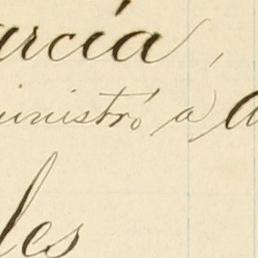 arcía,
ministró a a
les